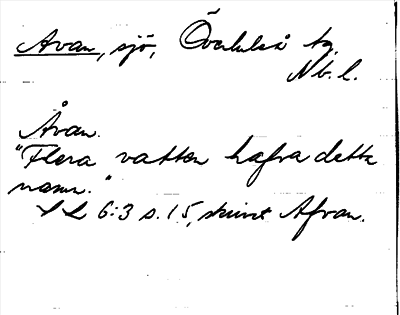 Avan, sjö, Överluleå tg.
Nb. l.
Åvan.
"Flera vatten hafva detta
namn."
LL 6:3 s. 15, skrivet Afvan.